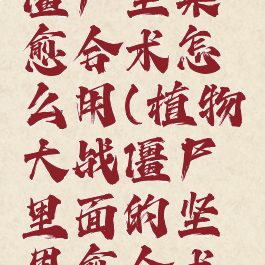 僵尸坚果
愈合术怎
么用(植物
大战僵尸
里面的坚
果愈合术